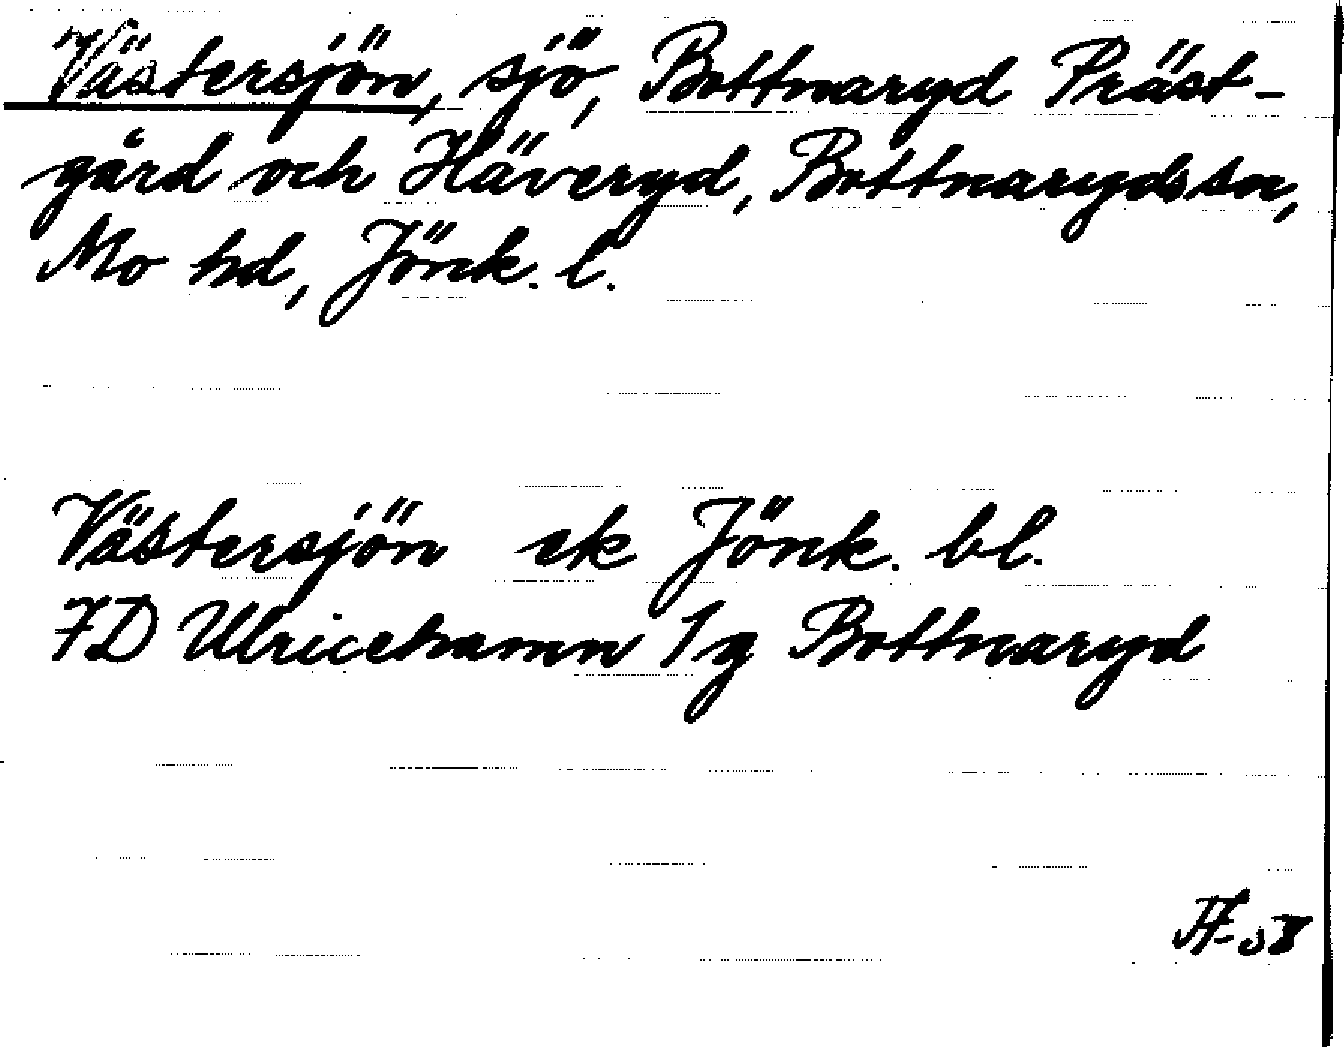 Västersjön, sjö, Bottnaryd Präst-
gård och Häveryd, Bottnaryds sn,
Mo hd, Jönk. l.
Västersjön ek Jönk. bl.
7D Ulricehamn 1g Bottnaryd